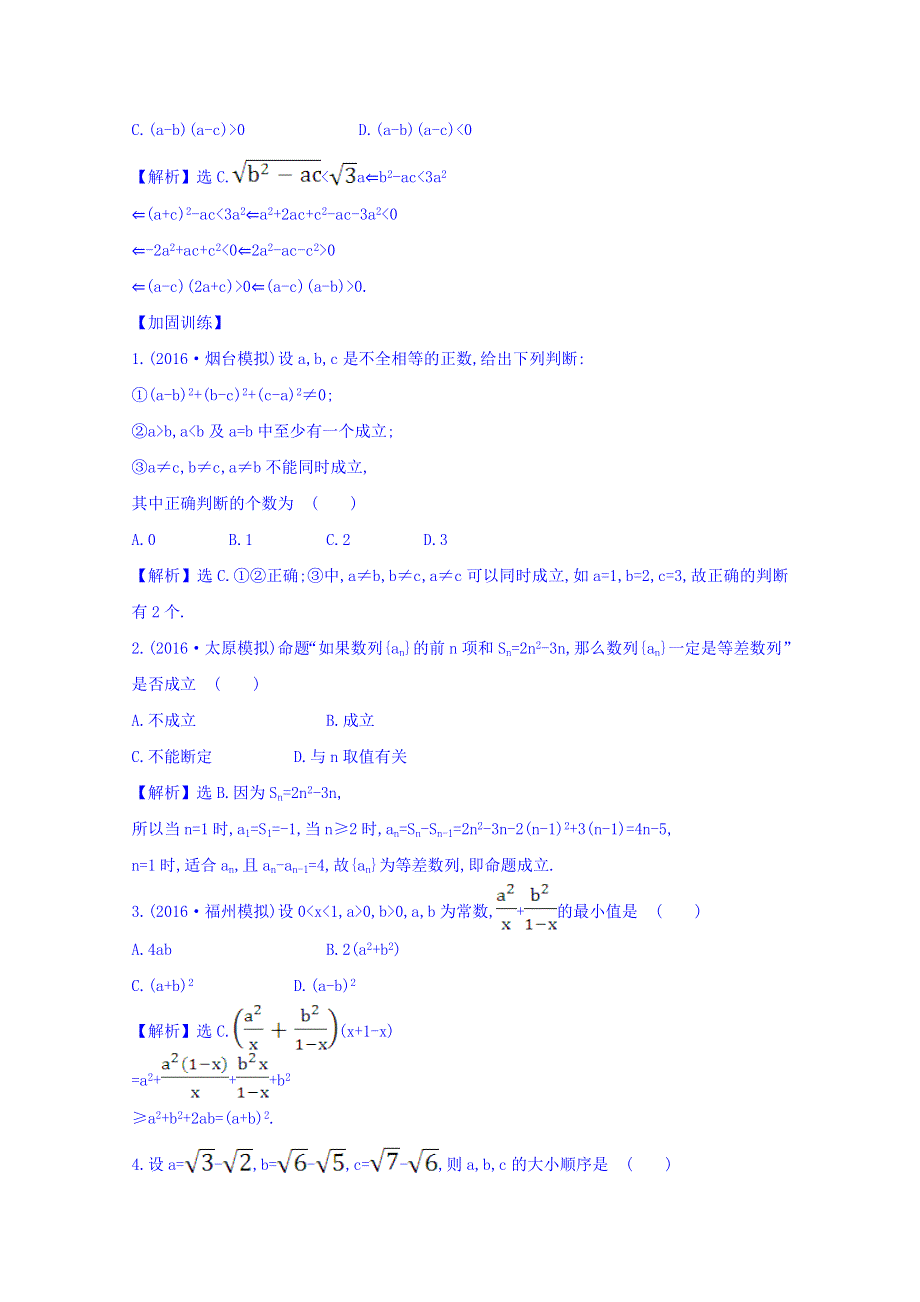 C.(a-b)(a-c)>0 D.(a-b)(a-c)<0
【解析】选C.√(b²-ac)<√3a⇐b²-ac<3a²
⇐(a+c)²-ac<3a²⇐a²+2ac+c²-ac-3a²<0
⇐-2a²+ac+c²<0⇐2a²-ac-c²>0
⇐(a-c)(2a+c)>0⇐(a-c)(a-b)>0.
【加固训练】
1.(2016·烟台模拟)设a,b,c是不全相等的正数,给出下列判断:
①(a-b)²+(b-c)²+(c-a)²≠0;
②a>b,a<b及a=b中至少有一个成立;
③a≠c,b≠c,a≠b不能同时成立,
其中正确判断的个数为 ( )
A.0 B.1 C.2 D.3
【解析】选C.①②正确;③中,a≠b,b≠c,a≠c可以同时成立,如a=1,b=2,c=3,故正确的判断
有2个.
2.(2016·太原模拟)命题“如果数列{aₙ}的前n项和Sₙ=2n²-3n,那么数列{aₙ}一定是等差数列”
是否成立 ( )
A.不成立 B.成立
C.不能断定 D.与n取值有关
【解析】选B.因为Sₙ=2n²-3n,
所以当n=1时,a₁=S₁=-1,当n≥2时,aₙ=Sₙ-Sₙ₋₁=2n²-3n-2(n-1)²+3(n-1)=4n-5,
n=1时,适合aₙ,且aₙ-aₙ₋₁=4,故{aₙ}为等差数列,即命题成立.
3.(2016·福州模拟)设0<x<1,a>0,b>0,a,b为常数,a²/x+b²/(1-x)的最小值是 ( )
A.4ab B.2(a²+b²)
C.(a+b)² D.(a-b)²
【解析】选C.(a²/x+b²/(1-x))(x+1-x)
=a²+a²(1-x)/x+b²x/(1-x)+b²
≥a²+b²+2ab=(a+b)².
4.设a=√3-√2,b=√6-√5,c=√7-√6,则a,b,c的大小顺序是 ( )